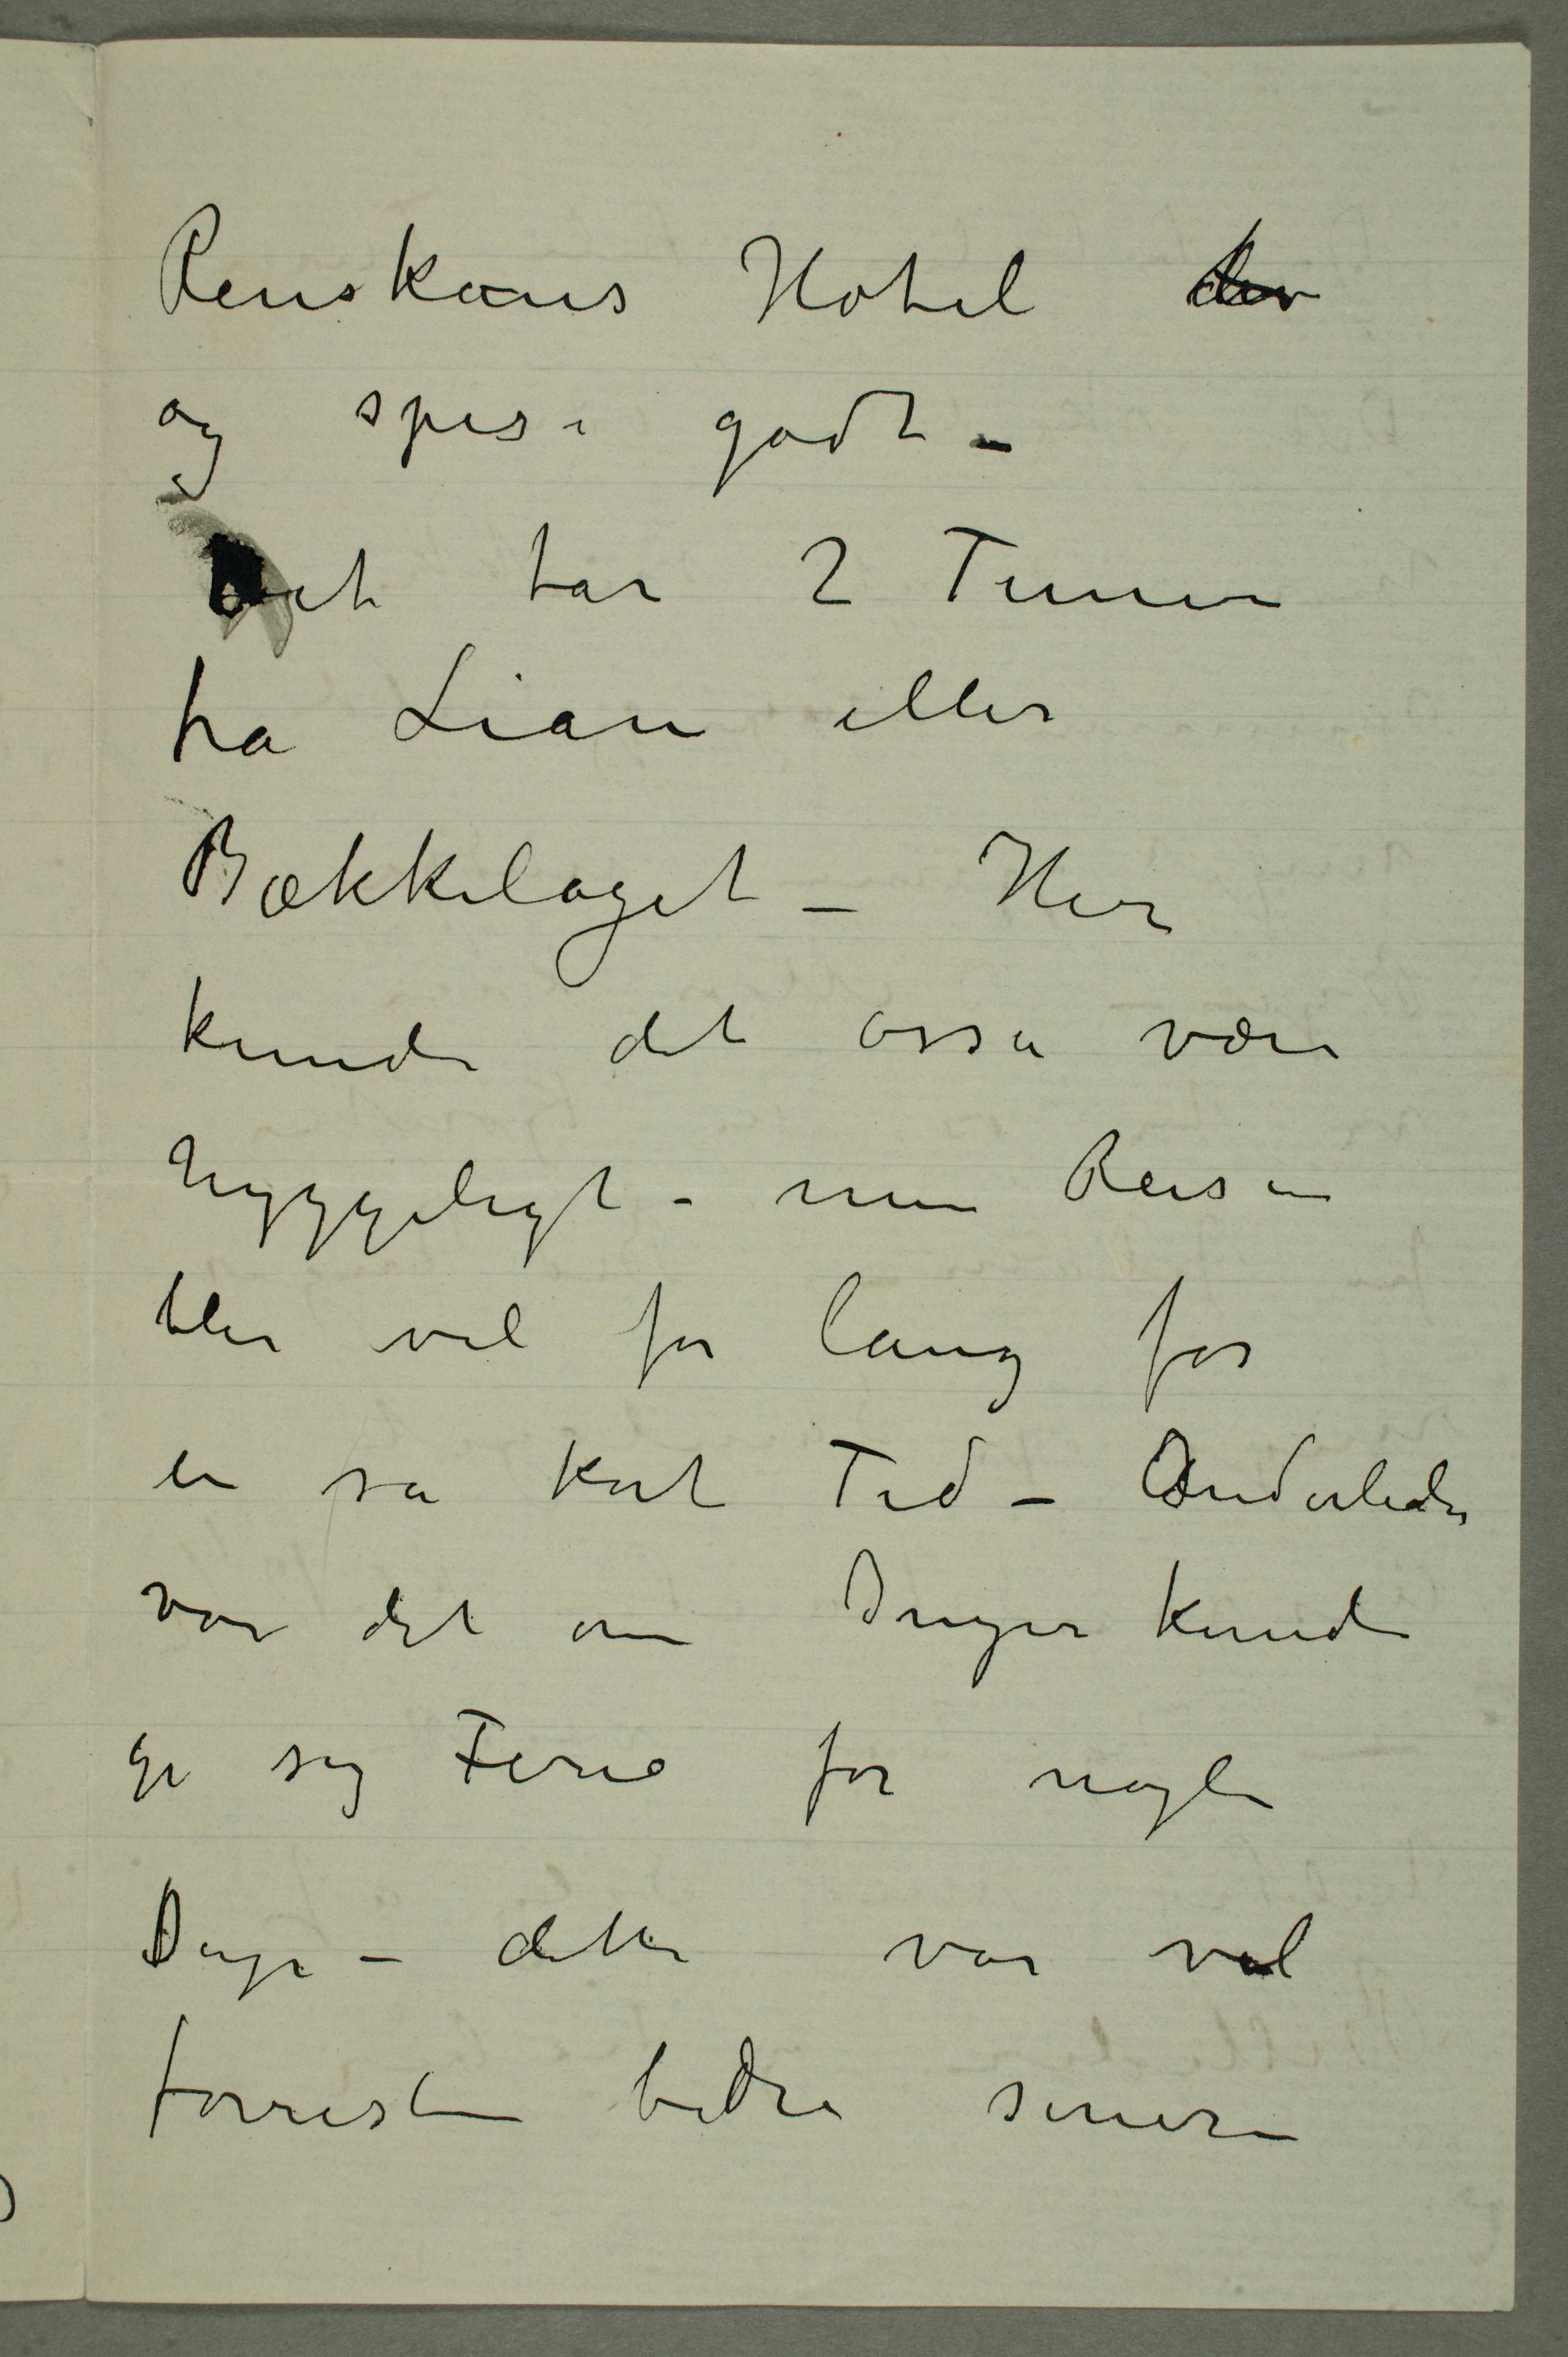 Renskaus Hotel der
og spise godt –
Det tar 2 Timer
fra Lian eller
Bækkelaget – Her
kunde det ossa være
hyggeligt – men Reisen
blir vel for lang for
en sa kort Tid – Anderledes
var det om Inger kunde
gi sig Ferie for nogle
Dage – dette var vel
forresten bedre senere